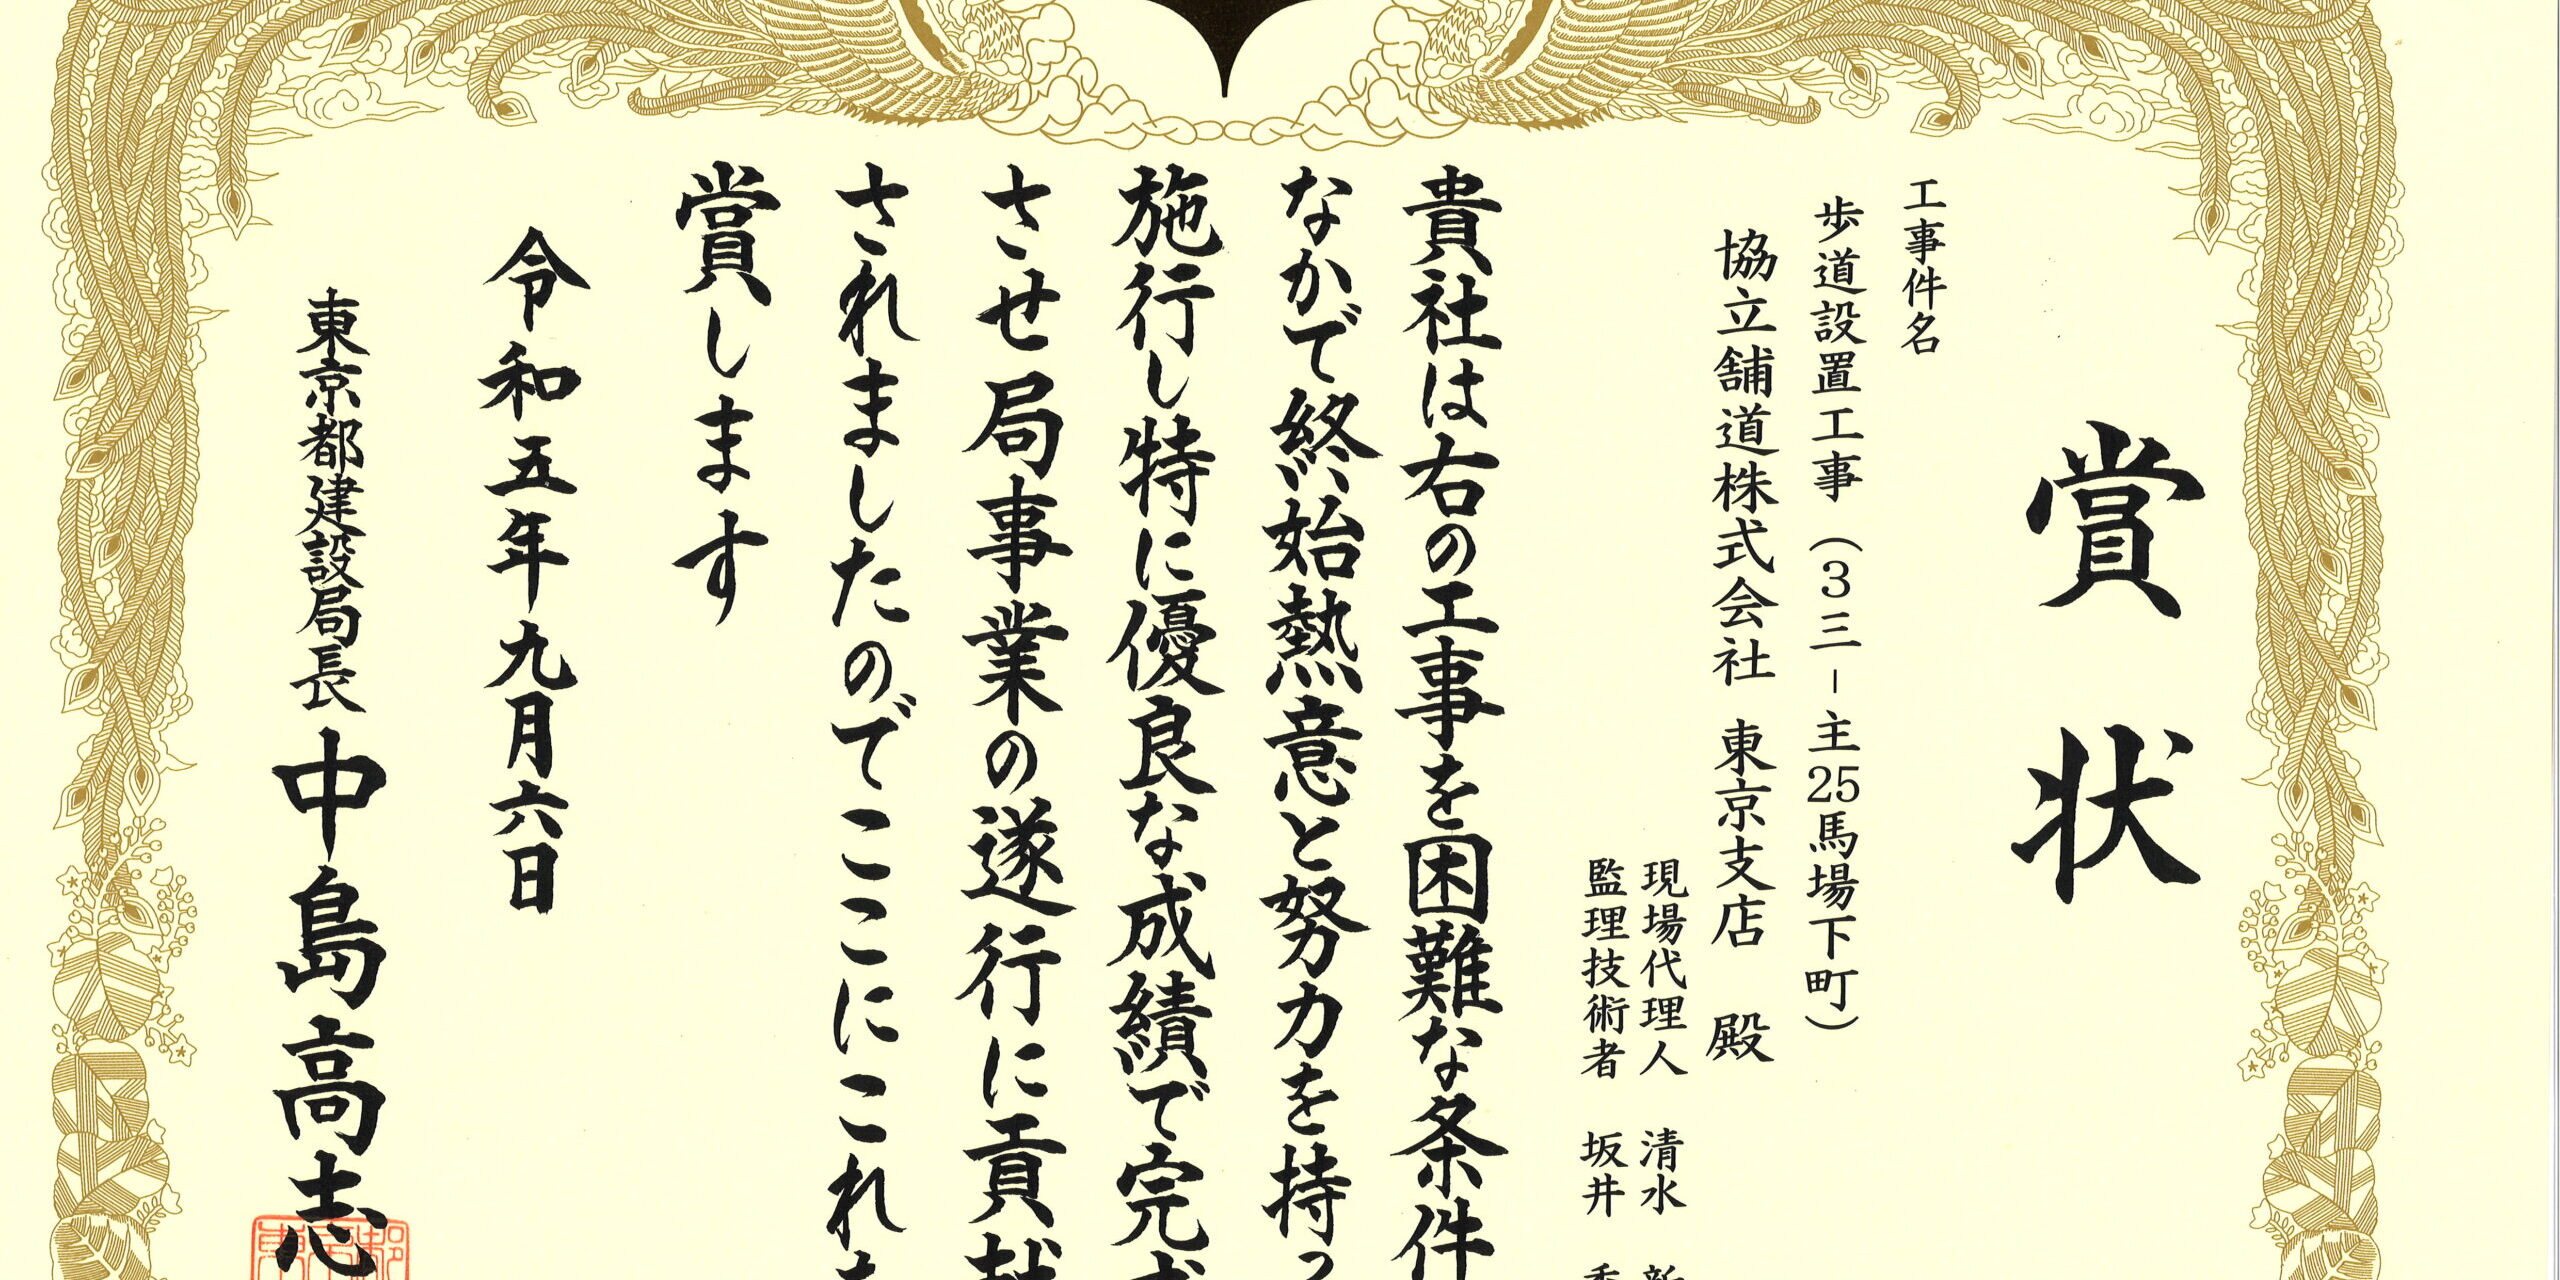 賞状
工事件名
歩道設置工事（3三-主25馬場下町）
協立舗道株式会社 東京支店 殿
現場代理人 清水
監理技術者 坂井
貴社は右の工事を困難な条件
なかで終始熱意と努力を持っ
施行し特に優良な成績で完成
させ局事業の遂行に貢献
されましたのでここにこれを
賞します
令和五年九月六日
東京都建設局長 中島高志